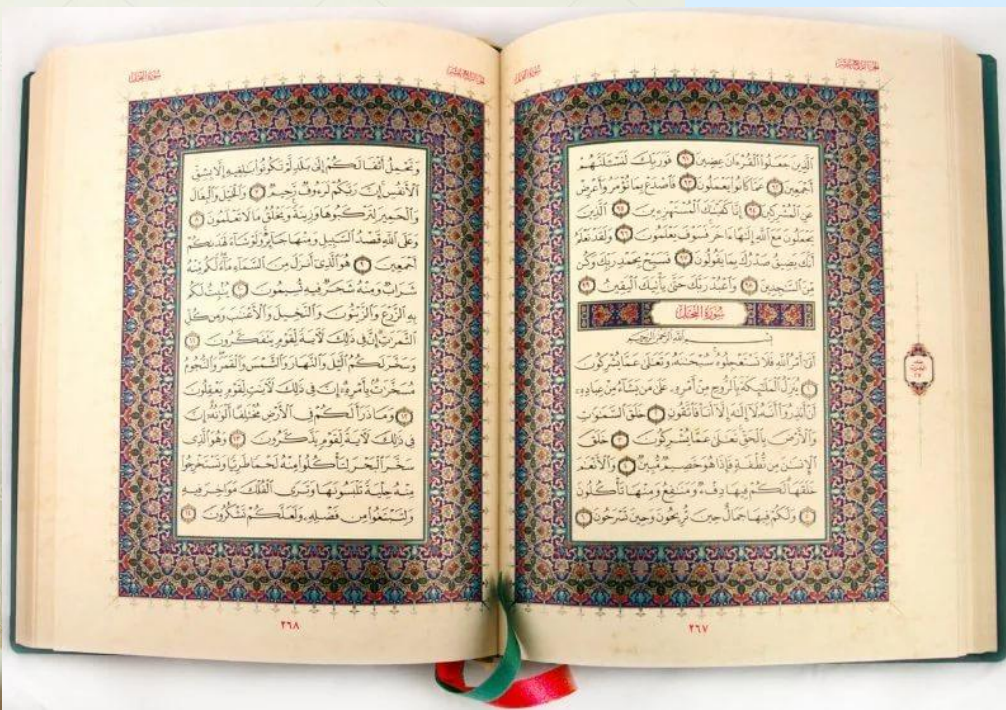 الجزء الرابع عشر
ٱلَّذِينَ جَعَلُواْ ٱلْقُرْءَانَ عِضِينَ ٩١ فَوَرَبِّكَ لَنَسْـَٔلَنَّهُمْ
أَجْمَعِينَ ٩٢ عَمَّا كَانُواْ يَعْمَلُونَ ٩٣ فَٱصْدَعْ بِمَا تُؤْمَرُ وَأَعْرِضْ
عَنِ ٱلْمُشْرِكِينَ ٩٤ إِنَّا كَفَيْنَٰكَ ٱلْمُسْتَهْزِءِينَ ٩٥ ٱلَّذِينَ
يَجْعَلُونَ مَعَ ٱللَّهِ إِلَٰهًا ءَاخَرَ فَسَوْفَ يَعْلَمُونَ ٩٦ وَلَقَدْ نَعْلَمُ
أَنَّكَ يَضِيقُ صَدْرُكَ بِمَا يَقُولُونَ ٩٧ فَسَبِّحْ بِحَمْدِ رَبِّكَ وَكُن
مِّنَ ٱلسَّٰجِدِينَ ٩٨ وَٱعْبُدْ رَبَّكَ حَتَّىٰ يَأْتِيَكَ ٱلْيَقِينُ ٩٩
سُورَةُ النَّحْلِ
بِسْمِ ٱللَّهِ ٱلرَّحْمَٰنِ ٱلرَّحِيمِ
أَتَىٰٓ أَمْرُ ٱللَّهِ فَلَا تَسْتَعْجِلُوهُ سُبْحَٰنَهُۥ وَتَعَٰلَىٰ عَمَّا يُشْرِكُونَ
١ يُنَزِّلُ ٱلْمَلَٰٓئِكَةَ بِٱلرُّوحِ مِنْ أَمْرِهِۦ عَلَىٰ مَن يَشَآءُ مِنْ عِبَادِهِۦٓ
أَنْ أَنذِرُوٓاْ أَنَّهُۥ لَآ إِلَٰهَ إِلَّآ أَنَا۠ فَٱتَّقُونِ ٢ خَلَقَ ٱلسَّمَٰوَٰتِ
وَٱلْأَرْضَ بِٱلْحَقِّ تَعَٰلَىٰ عَمَّا يُشْرِكُونَ ٣ خَلَقَ
ٱلْإِنسَٰنَ مِن نُّطْفَةٍ فَإِذَا هُوَ خَصِيمٌ مُّبِينٌ ٤ وَٱلْأَنْعَٰمَ
خَلَقَهَا لَكُمْ فِيهَا دِفْءٌ وَمَنَٰفِعُ وَمِنْهَا تَأْكُلُونَ
٥ وَلَكُمْ فِيهَا جَمَالٌ حِينَ تُرِيحُونَ وَحِينَ تَسْرَحُونَ ٦
٢٦٧
الجزء الرابع عشر
سورة النحل
وَتَحْمِلُ أَثْقَالَكُمْ إِلَىٰ بَلَدٍ لَّمْ تَكُونُواْ بَٰلِغِيهِ إِلَّا بِشِقِّ
ٱلْأَنفُسِ إِنَّ رَبَّكُمْ لَرَءُوفٌ رَّحِيمٌ ٧ وَٱلْخَيْلَ وَٱلْبِغَالَ
وَٱلْحَمِيرَ لِتَرْكَبُوهَا وَزِينَةً وَيَخْلُقُ مَا لَا تَعْلَمُونَ ٨
وَعَلَى ٱللَّهِ قَصْدُ ٱلسَّبِيلِ وَمِنْهَا جَآئِرٌ وَلَوْ شَآءَ لَهَدَىٰكُمْ
أَجْمَعِينَ ٩ هُوَ ٱلَّذِىٓ أَنزَلَ مِنَ ٱلسَّمَآءِ مَآءً لَّكُم مِّنْهُ
شَرَابٌ وَمِنْهُ شَجَرٌ فِيهِ تُسِيمُونَ ١٠ يُنۢبِتُ لَكُم
بِهِ ٱلزَّرْعَ وَٱلزَّيْتُونَ وَٱلنَّخِيلَ وَٱلْأَعْنَٰبَ وَمِن كُلِّ
ٱلثَّمَرَٰتِ إِنَّ فِى ذَٰلِكَ لَأٓيَةً لِّقَوْمٍ يَتَفَكَّرُونَ ١١
وَسَخَّرَ لَكُمُ ٱلَّيْلَ وَٱلنَّهَارَ وَٱلشَّمْسَ وَٱلْقَمَرَ وَٱلنُّجُومُ
مُسَخَّرَٰتٌۢ بِأَمْرِهِۦٓ إِنَّ فِى ذَٰلِكَ لَأٓيَٰتٍ لِّقَوْمٍ يَعْقِلُونَ
١٢ وَمَا ذَرَأَ لَكُمْ فِى ٱلْأَرْضِ مُخْتَلِفًا أَلْوَٰنُهُۥٓ إِنَّ
فِى ذَٰلِكَ لَأٓيَةً لِّقَوْمٍ يَذَّكَّرُونَ ١٣ وَهُوَ ٱلَّذِى
سَخَّرَ ٱلْبَحْرَ لِتَأْكُلُواْ مِنْهُ لَحْمًا طَرِيًّا وَتَسْتَخْرِجُواْ
مِنْهُ حِلْيَةً تَلْبَسُونَهَا وَتَرَى ٱلْفُلْكَ مَوَاخِرَ فِيهِ
وَلِتَبْتَغُواْ مِن فَضْلِهِۦ وَلَعَلَّكُمْ تَشْكُرُونَ ١٤
٢٦٨